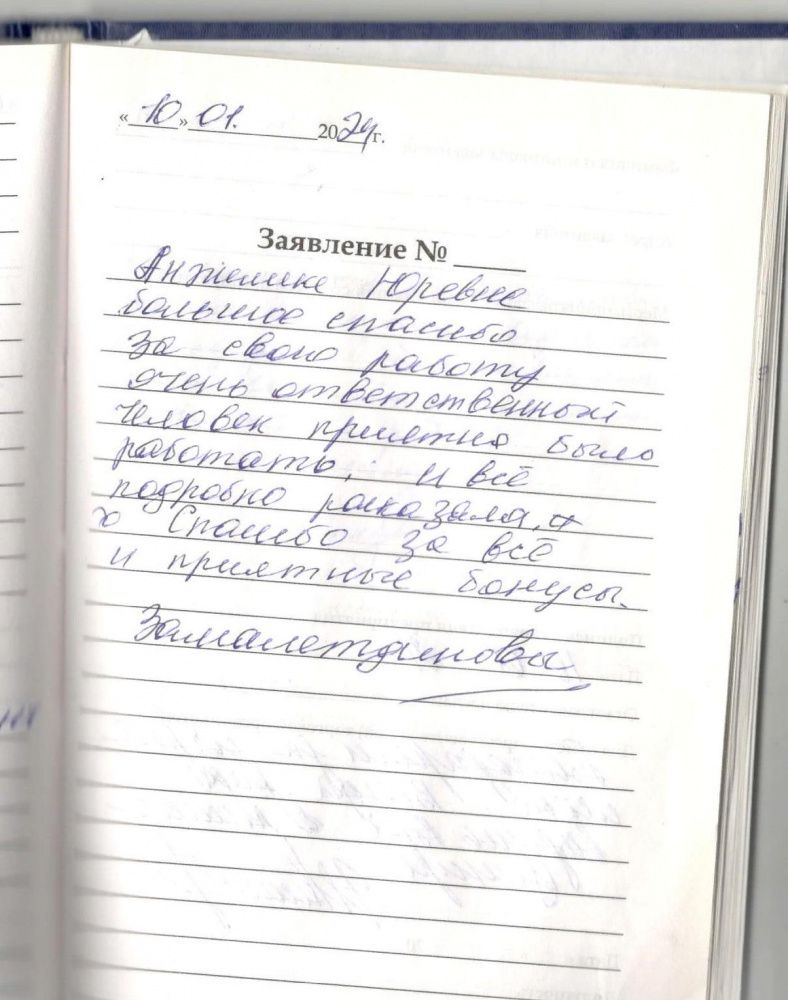 «10» 01. 2024 г.
Заявление № ____
Анжелике Юревне
большое спасибо
за свою работу
очень ответственный
человек приятно было
работать, и всё
подробно расказала,
Спасибо за всё
и приятные бонусы.
Замалетдиновы